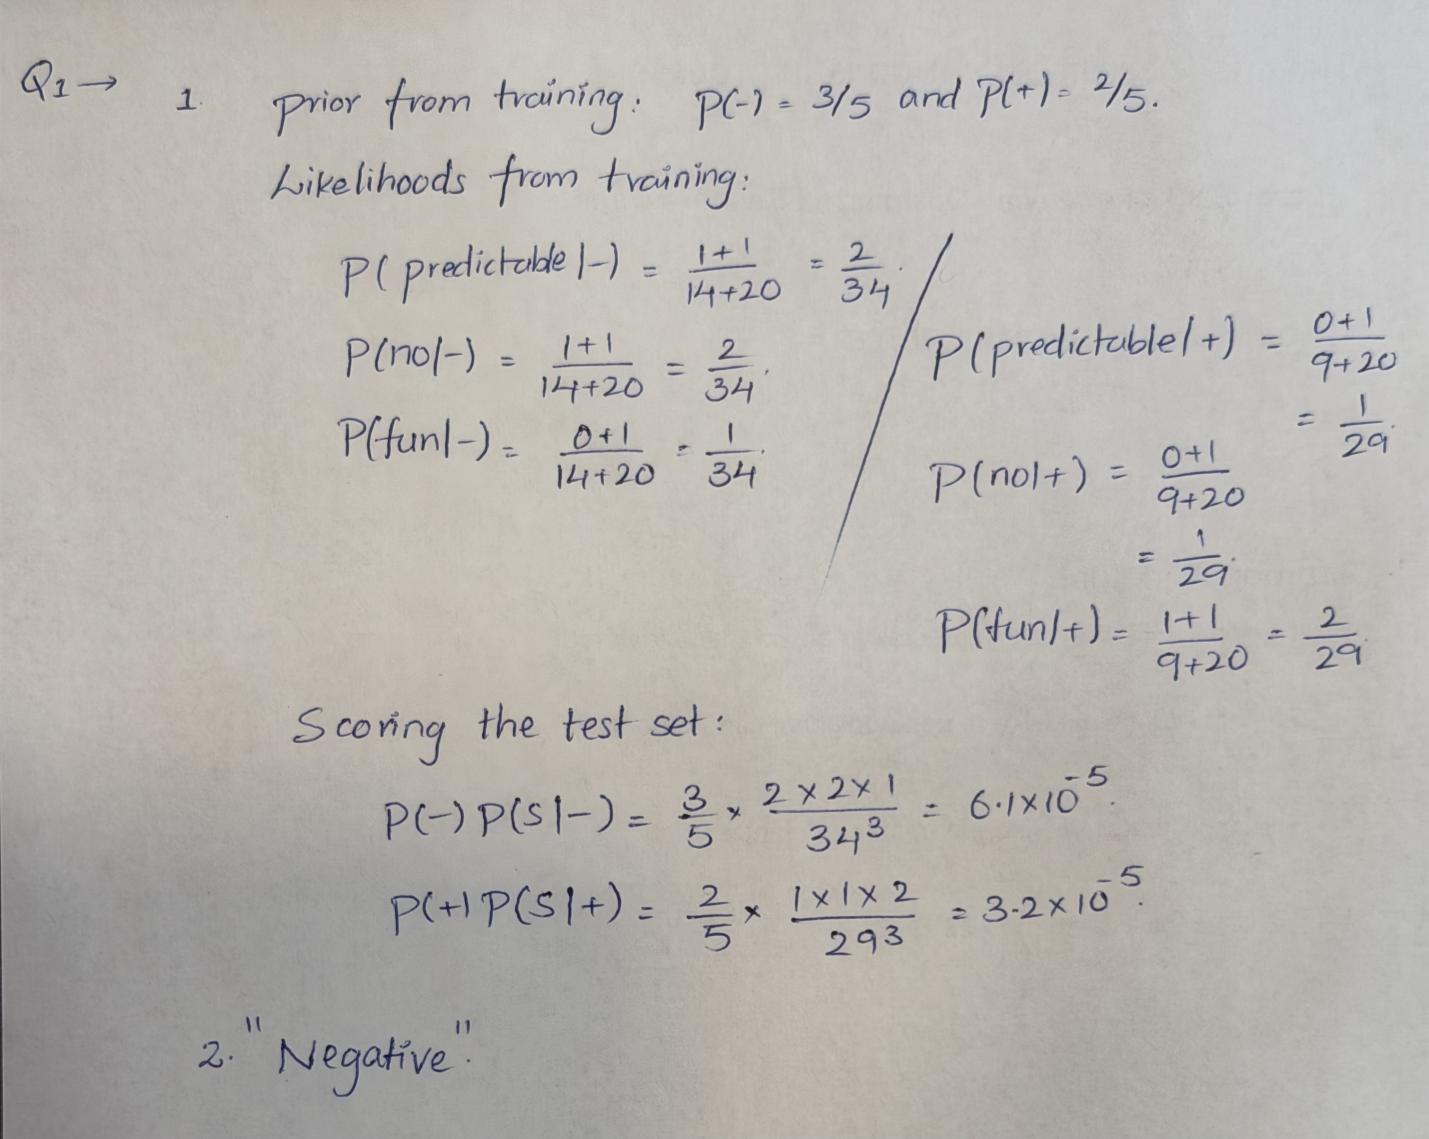 Q1 → 1. prior from training: P(-) = 3/5 and P(+) = 2/5.
Likelihoods from training:
P(predictable|-) = 1+1/14+20 = 2/34.
P(no|-) = 1+1/14+20 = 2/34.
P(fun|-) = 0+1/14+20 = 1/34.
P(predictable|+) = 0+1/9+20
= 1/29.
P(no|+) = 0+1/9+20
= 1/29.
P(fun|+) = 1+1/9+20 = 2/29.
Scoring the test set:
P(-) P(S|-) = 3/5 × 2×2×1/34³ = 6.1×10⁻⁵.
P(+) P(S|+) = 2/5 × 1×1×2/29³ = 3.2×10⁻⁵.
2. "Negative".